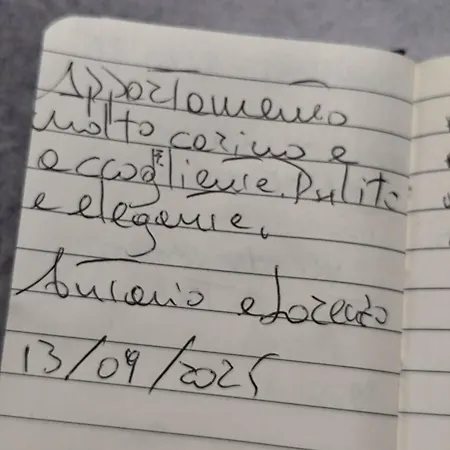 Appartamento
molto carino e
accogliente. Pulito
e elegante.
Antonio e Lorenzo
13/09/2025